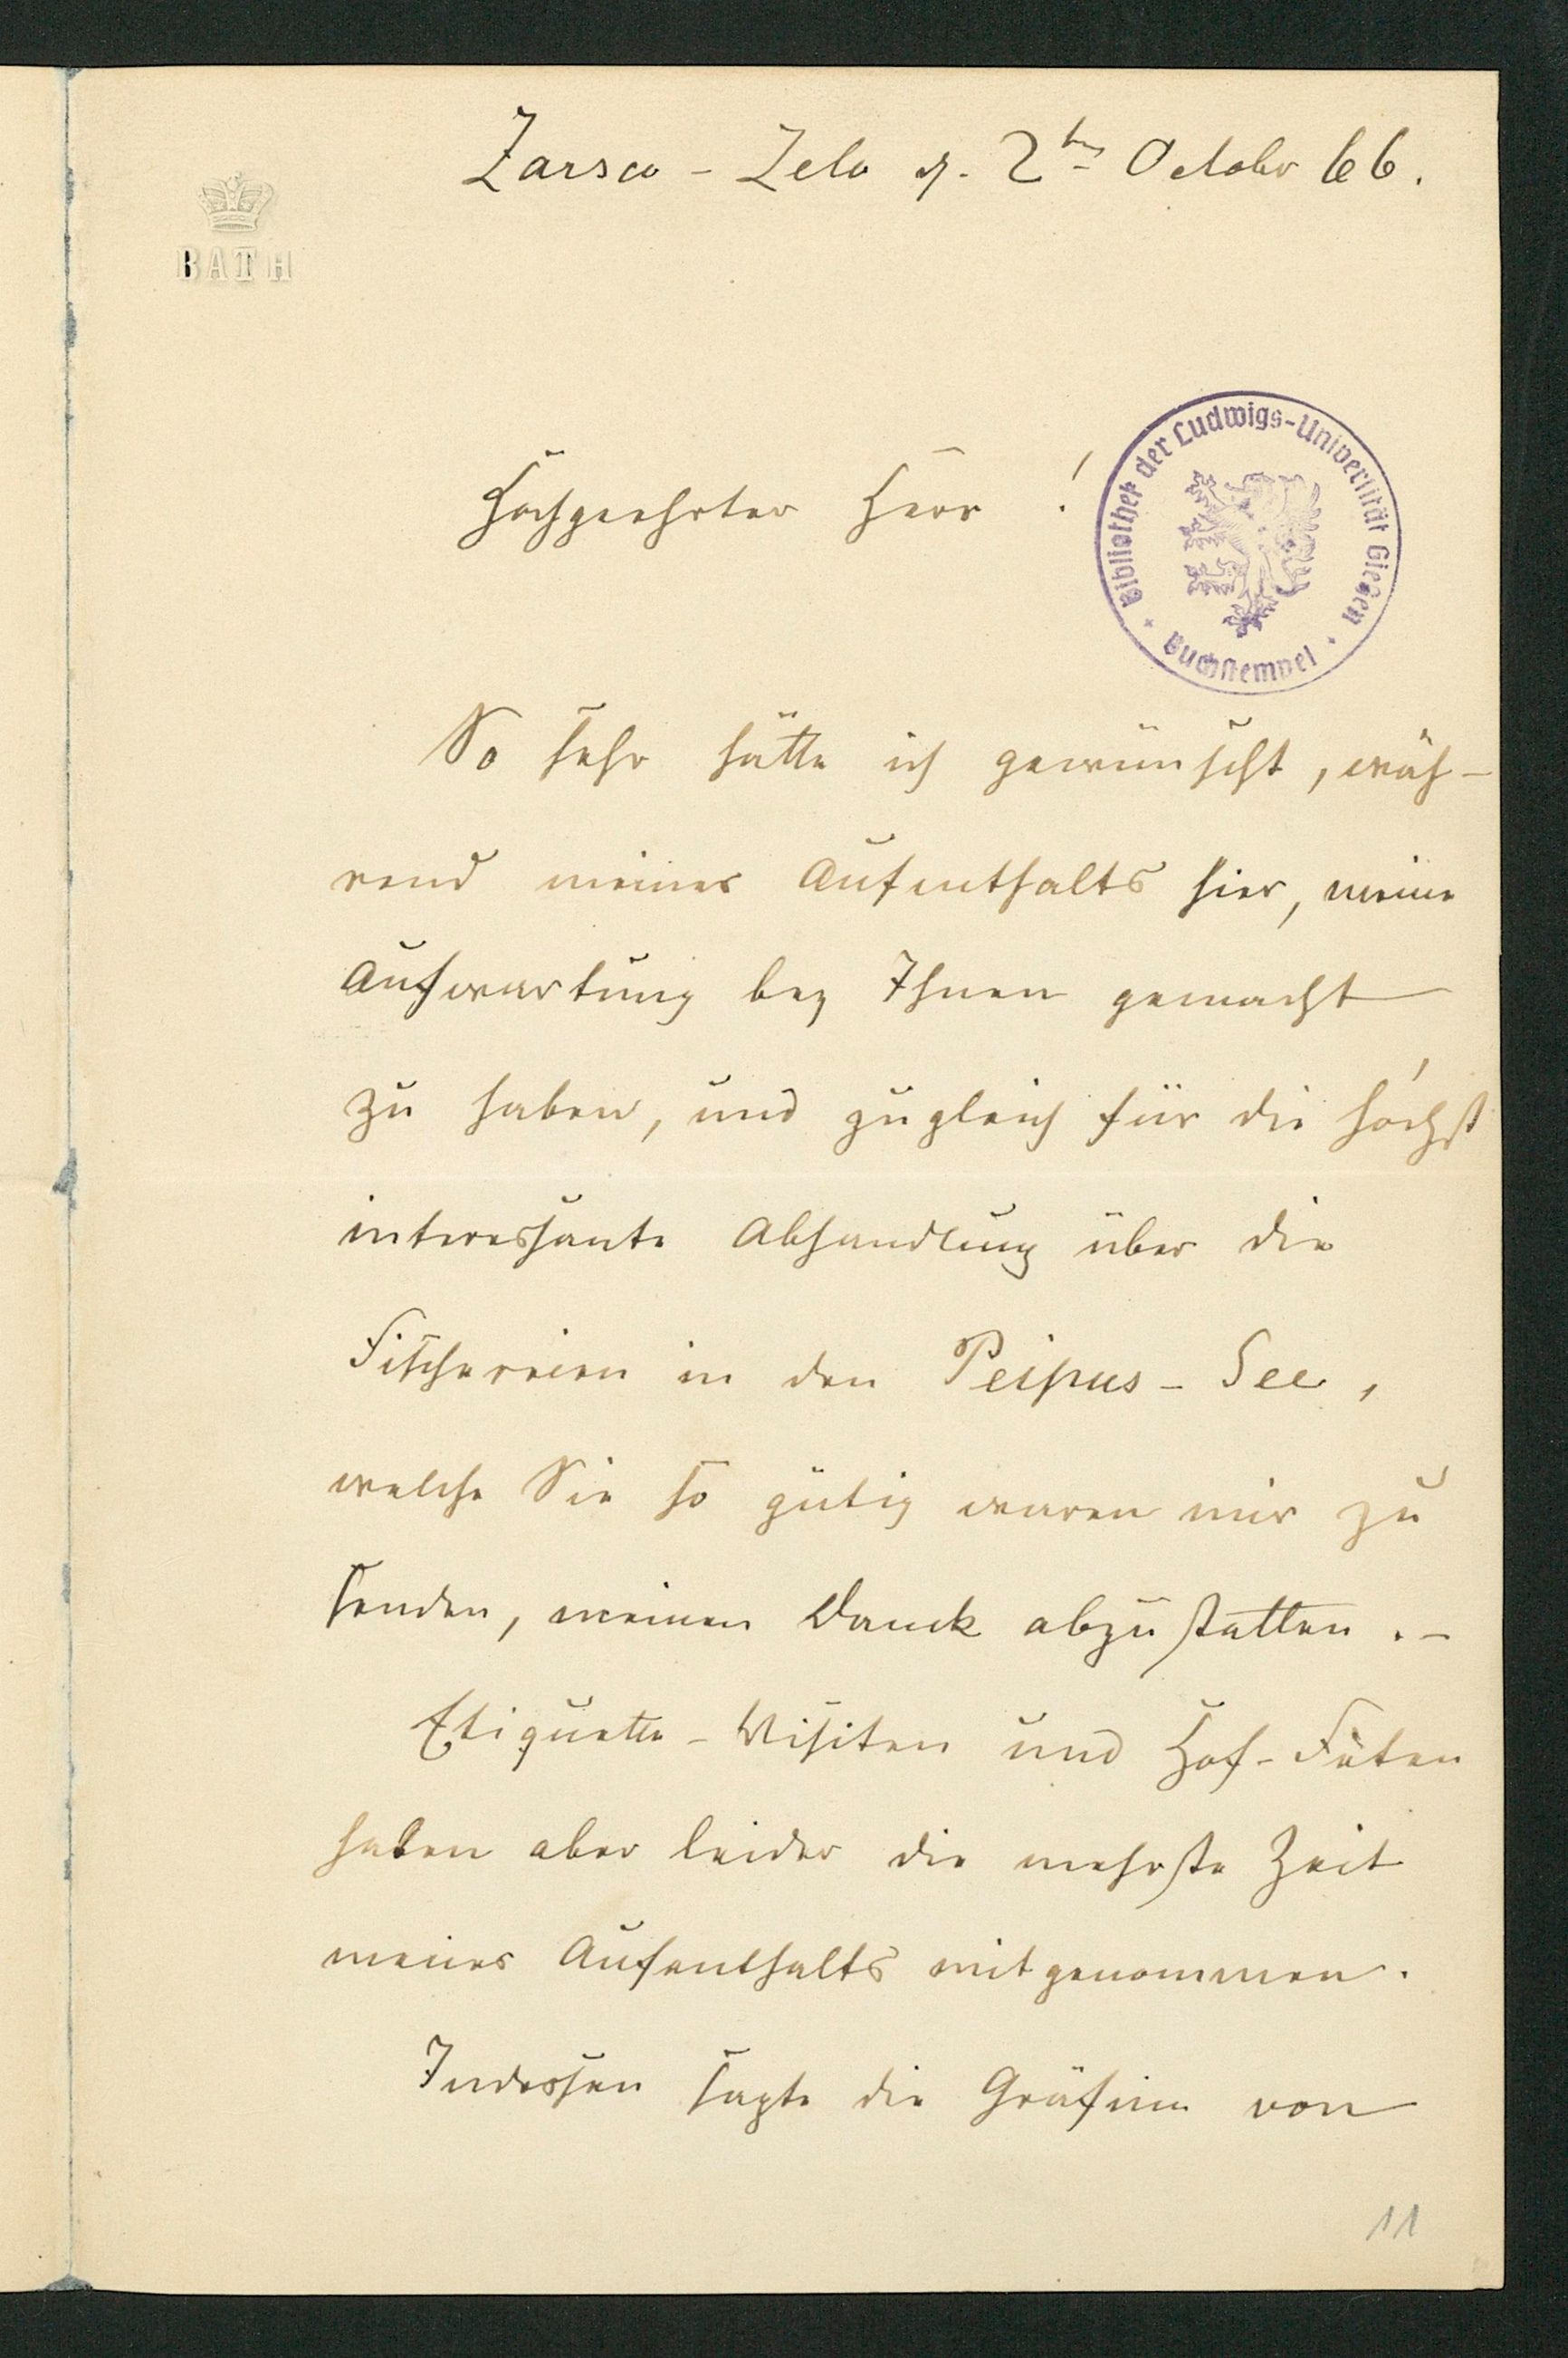 Zarsco-Zelo d. 2ten October 66.
BATH
Hochgeehrter Herr!
Bibliothek der Ludwigs-Universität Gießen
Buchstempel
So sehr hätte ich gewünscht, wäh-
rend meines Aufenthalts hier, meine
Aufwartung bey Ihnen gemacht
zu haben, und zugleich für die höchst
interessante Abhandlung über die
Fischereien in den Peipus-See,
welche Sie so gütig waren mir zu
senden, meinen Danck abzustatten.-
Etiquette-Visiten und Hof-Fêten
haben aber leider die mehrste Zeit
meines Aufenthalts mitgenommen.
Indessen sagte die Gräfinn von
11